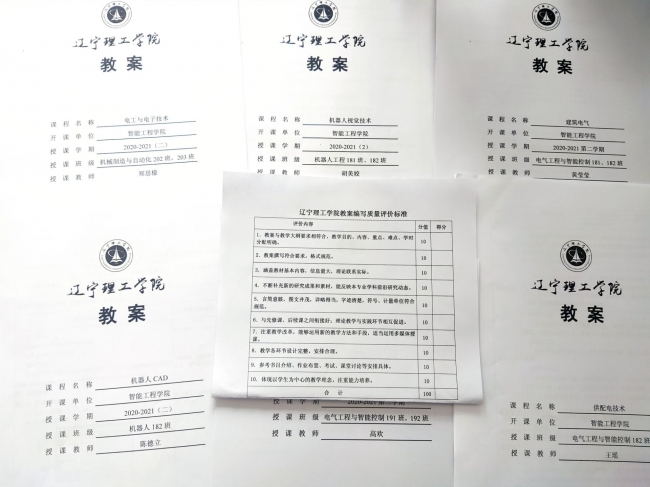 辽宁理工学院
教案
课程名称 电工与电子技术
开课单位 智能工程学院
授课学期 2020-2021（二）
授课班级 机械制造与自动化 202 班、203 班
授课教师
辽宁理工学院
教案
课程名称 机器人视觉技术
开课单位 智能工程学院
授课学期 2020-2021（2）
授课班级 机器人工程 181 班、182 班
授课教师 胡美姣
辽宁理工学院
教案
课程名称 建筑电气
开课单位 智能工程学院
授课学期 2020-2021 第二学期
授课班级 电气工程与智能控制 181、182 班
授课教师 黄莹莹
辽宁理工学院教案编写质量评价标准
评价内容 分值 得分
1、教案与教学大纲要求相符合，教学目的、内容、重点、难点、学时分配明确。 10
2、教案撰写符合要求，格式规范。 10
3、涵盖教材基本内容，信息量大，理论联系实际。 10
4、不断补充新的研究成果和素材，能反映本专业学科前沿研究动态。 10
5、言简意赅、图文并茂、详略得当，字迹清楚，符号、计量单位符合规范。 10
6、与先修课、后续课之间衔接好，理论教学与实践环节相互促进。 10
7、注重教学改革，能够运用新的教学方法和手段，适当运用多媒体授课。 10
8、教学各环节设计完整，安排合理。 10
9、参考书目介绍、作业布置、考试、课堂讨论等安排具体。 10
10、体现以学生为中心的教学理念，注重能力培养。 10
合计 100
辽宁理工学院
教案
课程名称 机器人 CAD
开课单位 智能工程学院
授课学期 2020-2021（二）
授课班级 机器人 182 班
授课教师 陈德立
授课学期
授课班级 电气工程与智能控制 191 班、192 班
授课教师 高欢
辽宁理工学院
教案
课程名称 供配电技术
开课单位 智能工程学院
授课学期 2020-2021（二）
授课班级 电气工程与智能控制 182 班
授课教师 王瑶